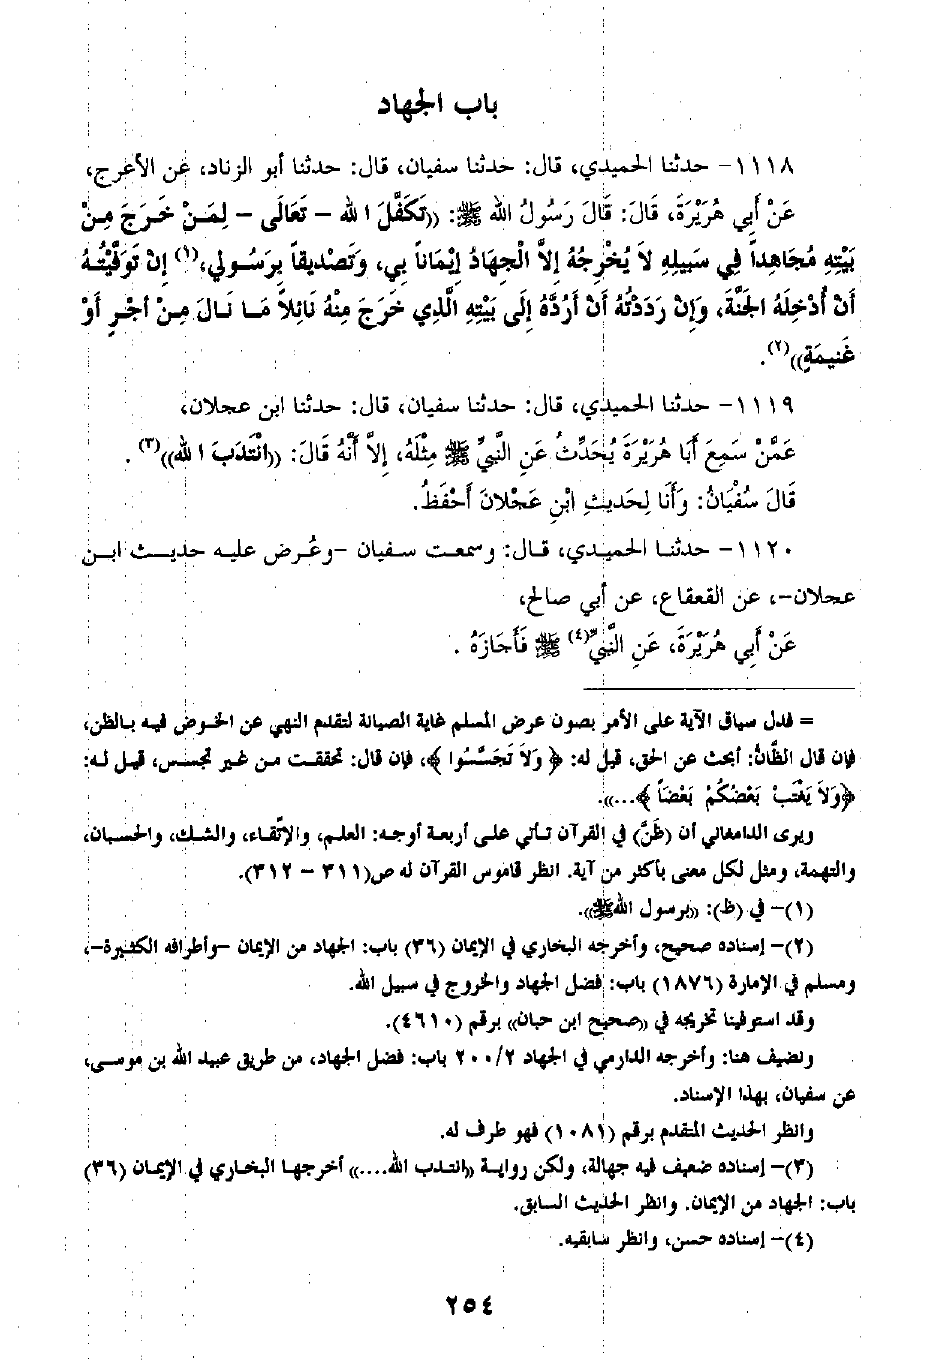 باب الجهاد
١١١٨- حدثنا الحميدي، قال: حدثنا سفيان، قال: حدثنا أبو الزناد، عن الأعرج،
عَنْ أَبِي هُرَيْرَةَ، قَالَ: قَالَ رَسُولُ اللهِ ﷺ: ((تَكَفَّلَ اللهُ - تَعَالَى - لِمَنْ خَرَجَ مِنْ
بَيْتِهِ مُجَاهِداً فِي سَبِيلِهِ لاَ يُخْرِجُهُ إِلاَّ الْجِهَادُ إِيْمَاناً بِي، وَتَصْدِيقاً بِرَسُولِي،(١) إِنْ تَوَفَّيْتُهُ
أَنْ أُدْخِلَهُ الجَنَّةَ، وَإِنْ رَدَدْتُهُ أَنْ أَرُدَّهُ إِلَى بَيْتِهِ الَّذِي خَرَجَ مِنْهُ نَائِلاً مَا نَالَ مِنْ أَجْرٍ أَوْ
غَنِيمَةٍ))(٢).
١١١٩- حدثنا الحميدي، قال: حدثنا سفيان، قال: حدثنا ابن عجلان،
عَمَّنْ سَمِعَ أَبَا هُرَيْرَةَ يُحَدِّثُ عَنِ النَّبِيِّ ﷺ مِثْلَهُ، إِلاَّ أَنَّهُ قَالَ: ((انْتَدَبَ اللهُ))(٣).
قَالَ سُفْيَانُ: وَأَنَا لِحَدِيثِ ابْنِ عَجْلانَ أَحْفَظُ.
١١٢٠- حدثنا الحميدي، قال: وسمعت سفيان -وعُرض عليه حديث ابن
عجلان-، عن القعقاع، عن أبي صالح،
عَنْ أَبِي هُرَيْرَةَ، عَنِ النَّبِيِّ(٤) ﷺ فَأَجَازَهُ.
= فدل سياق الآية على الأمر بصون عرض المسلم غاية الصيانة لتقدم النهي عن الخوض فيه بالظن،
فإن قال الظَّانُّ: أبحث عن الحق، قيل له: ﴿ وَلاَ تَجَسَّسُوا ﴾، فإن قال: تحققت من غير تجسس، قيل له:
﴿وَلاَ يَغْتَبْ بَعْضُكُمْ بَعْضَاً ﴾...)).
ويرى الدامغاني أن (ظَنَّ) في القرآن تأتي على أربعة أوجه: العلم، والاتِّقاء، والشك، والحسبان،
والتهمة، ومثل لكل معنى بأكثر من آية. انظر قاموس القرآن له ص(٣١١ - ٣١٢).
(١)- في (ظ): ((برسول اللهﷺ)).
(٢)- إسناده صحيح، وأخرجه البخاري في الإيمان (٣٦) باب: الجهاد من الإيمان -وأطرافه الكثيرة-،
ومسلم في الإمارة (١٨٧٦) باب: فضل الجهاد والخروج في سبيل الله.
وقد استوفينا تخريجه في ((صحيح ابن حبان)) برقم (٤٦١٠).
ونضيف هنا: وأخرجه الدارمي في الجهاد ٢٠٠/٢ باب: فضل الجهاد، من طريق عبيد الله بن موسى،
عن سفيان، بهذا الإسناد.
وانظر الحديث المتقدم برقم (١٠٨١) فهو طرف له.
(٣)- إسناده ضعيف فيه جهالة، ولكن رواية ((انتدب الله....)) أخرجها البخاري في الإيمان (٣٦)
باب: الجهاد من الإيمان. وانظر الحديث السابق.
(٤)- إسناده حسن، وانظر سابقيه.
٢٥٤